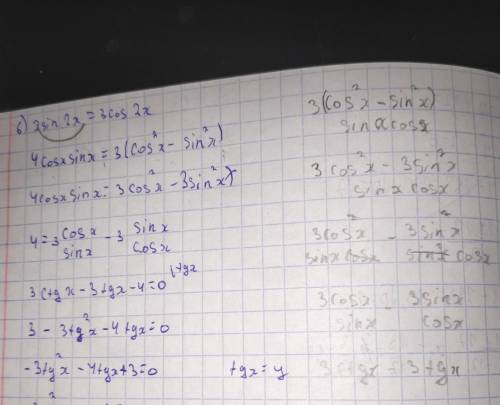 б) 2sin 2x = 3cos 2x
4cosx sinx = 3(cos²x - sin²x)
4cosx sinx = 3cos²x - 3sin²x
4 = 3 cosx/sinx - 3 sinx/cosx
3ctgx - 3tgx - 4 = 0 | tgx
3 - 3tg²x - 4tgx = 0
-3tg²x - 4tgx + 3 = 0 tgx = y
3(cos²x - sin²x)
sinx cosx
3cos²x - 3sin²x
sinx cosx
3cos²x - 3sin²x
sinx cosx sinx cosx
3cosx - 3sinx
sinx cosx
3ctgx - 3tgx